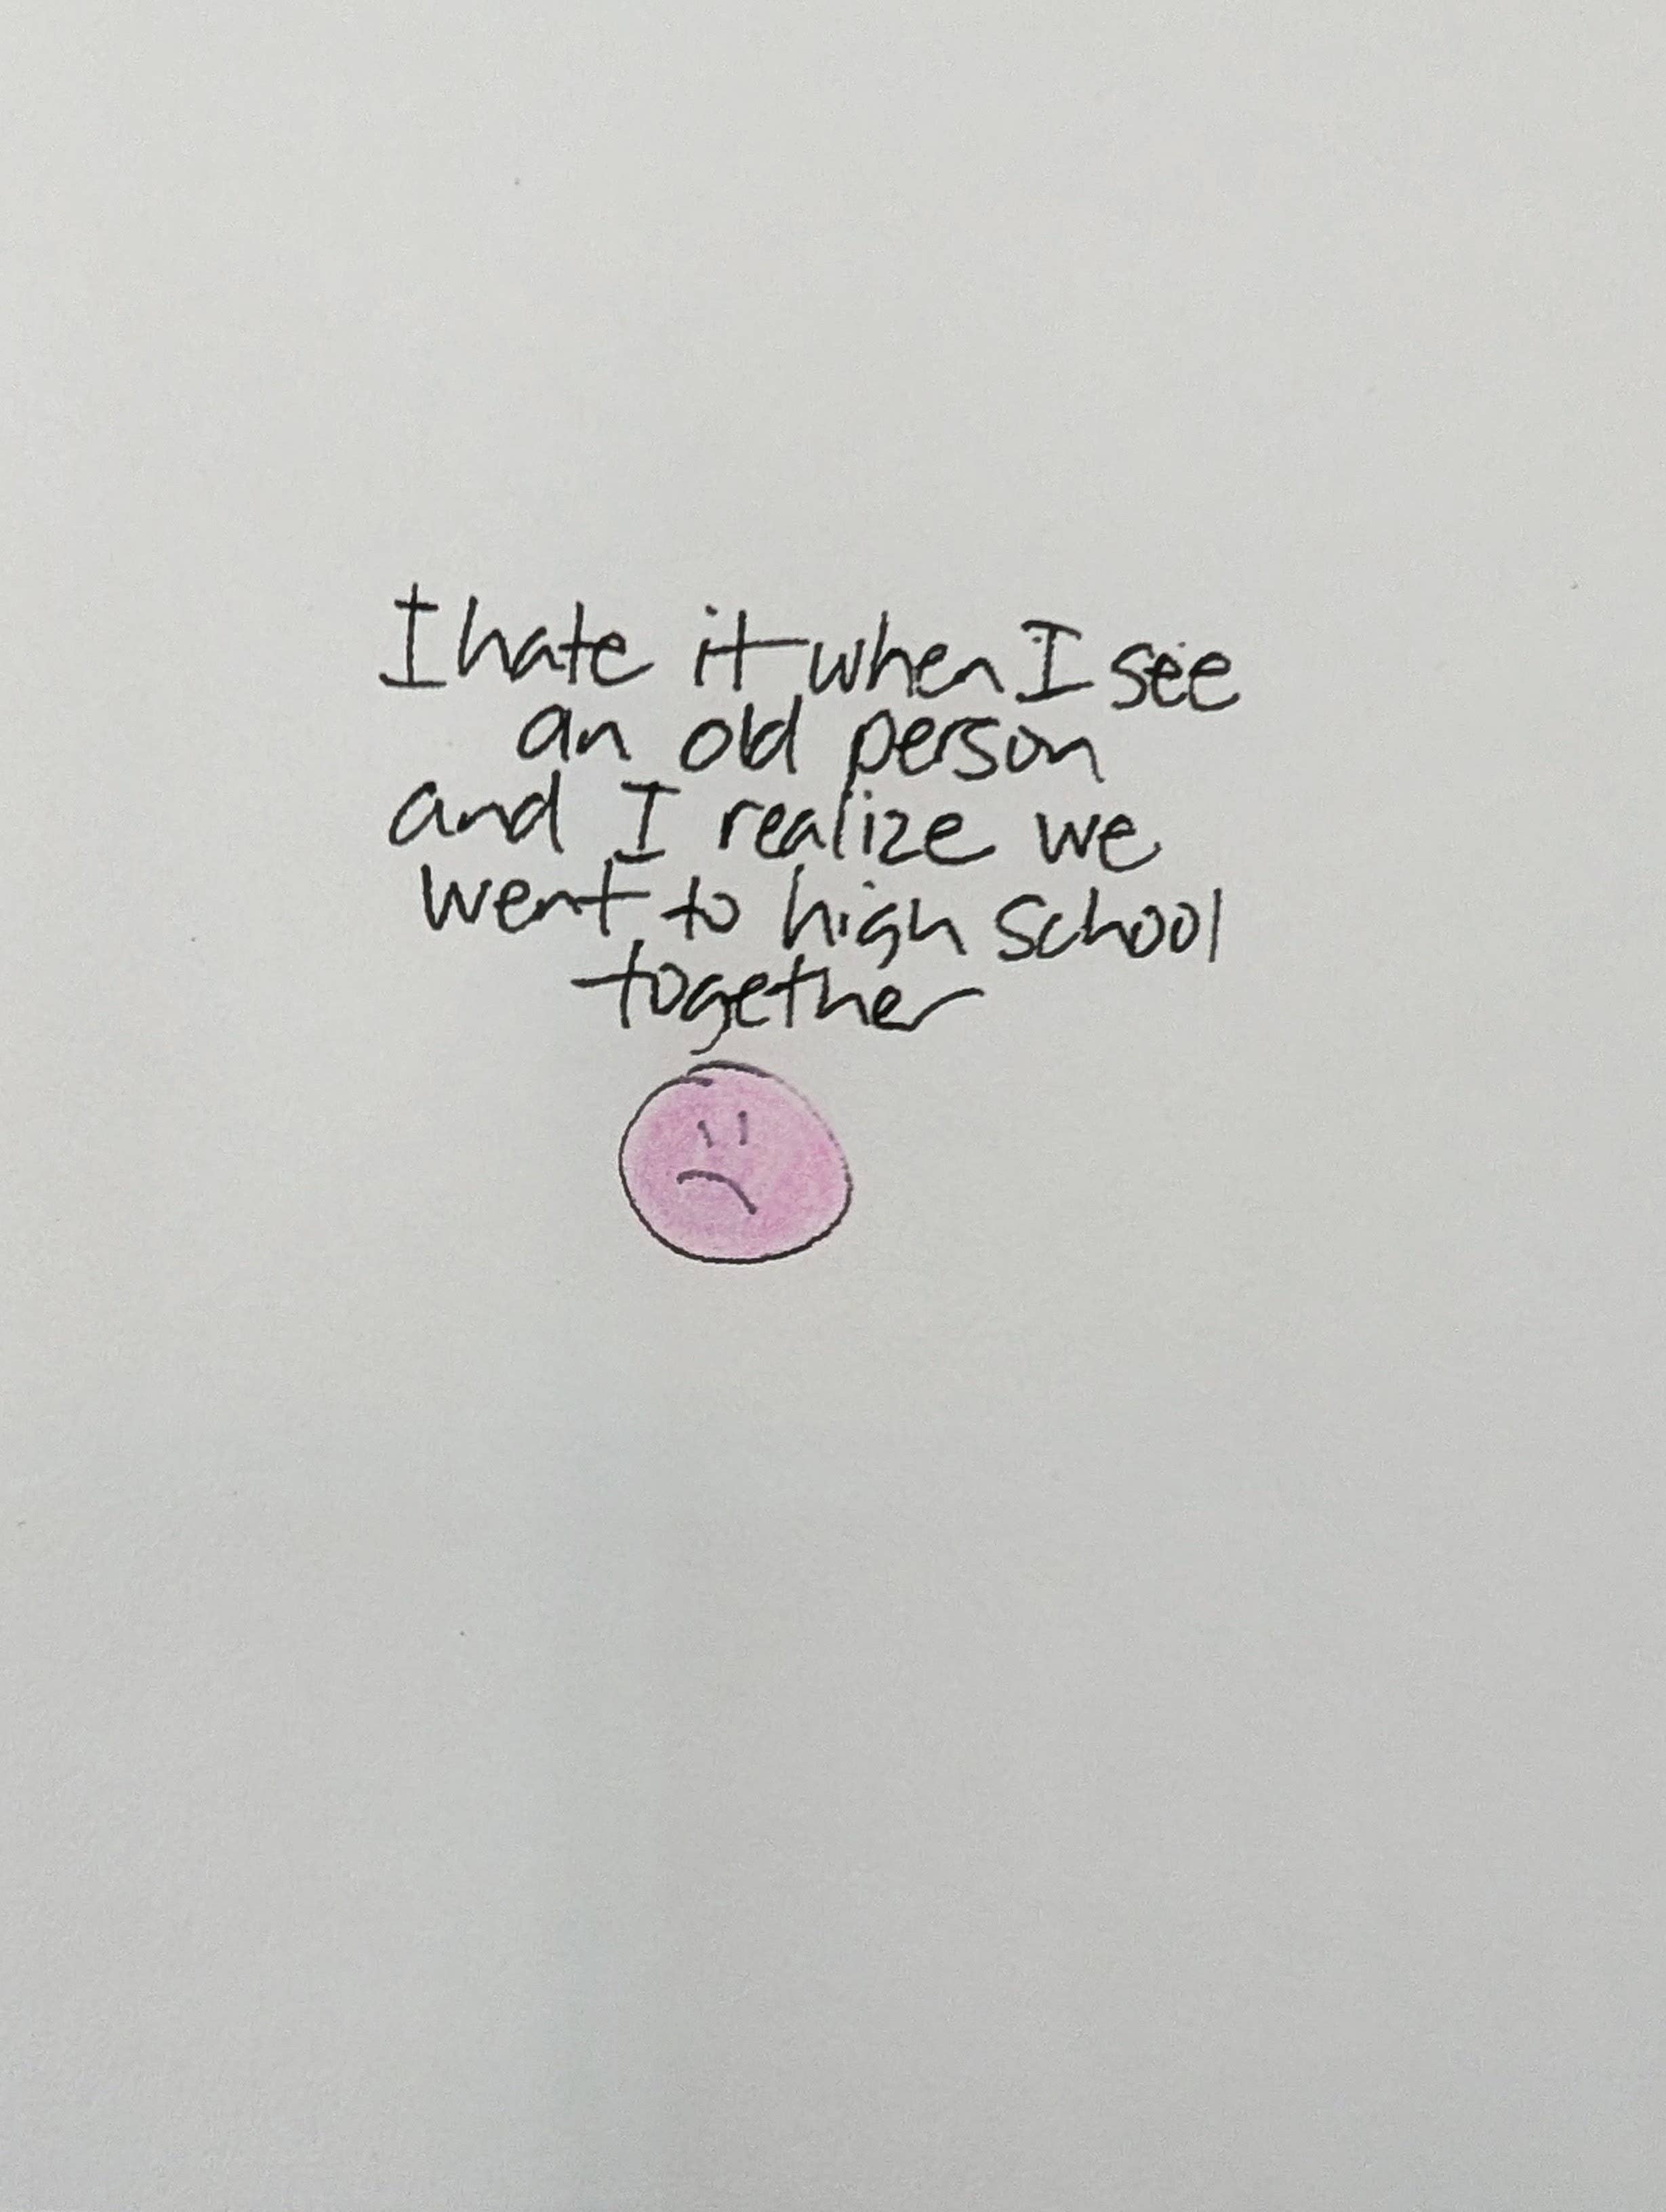 I hate it when I see
an old person
and I realize we
went to high school
together